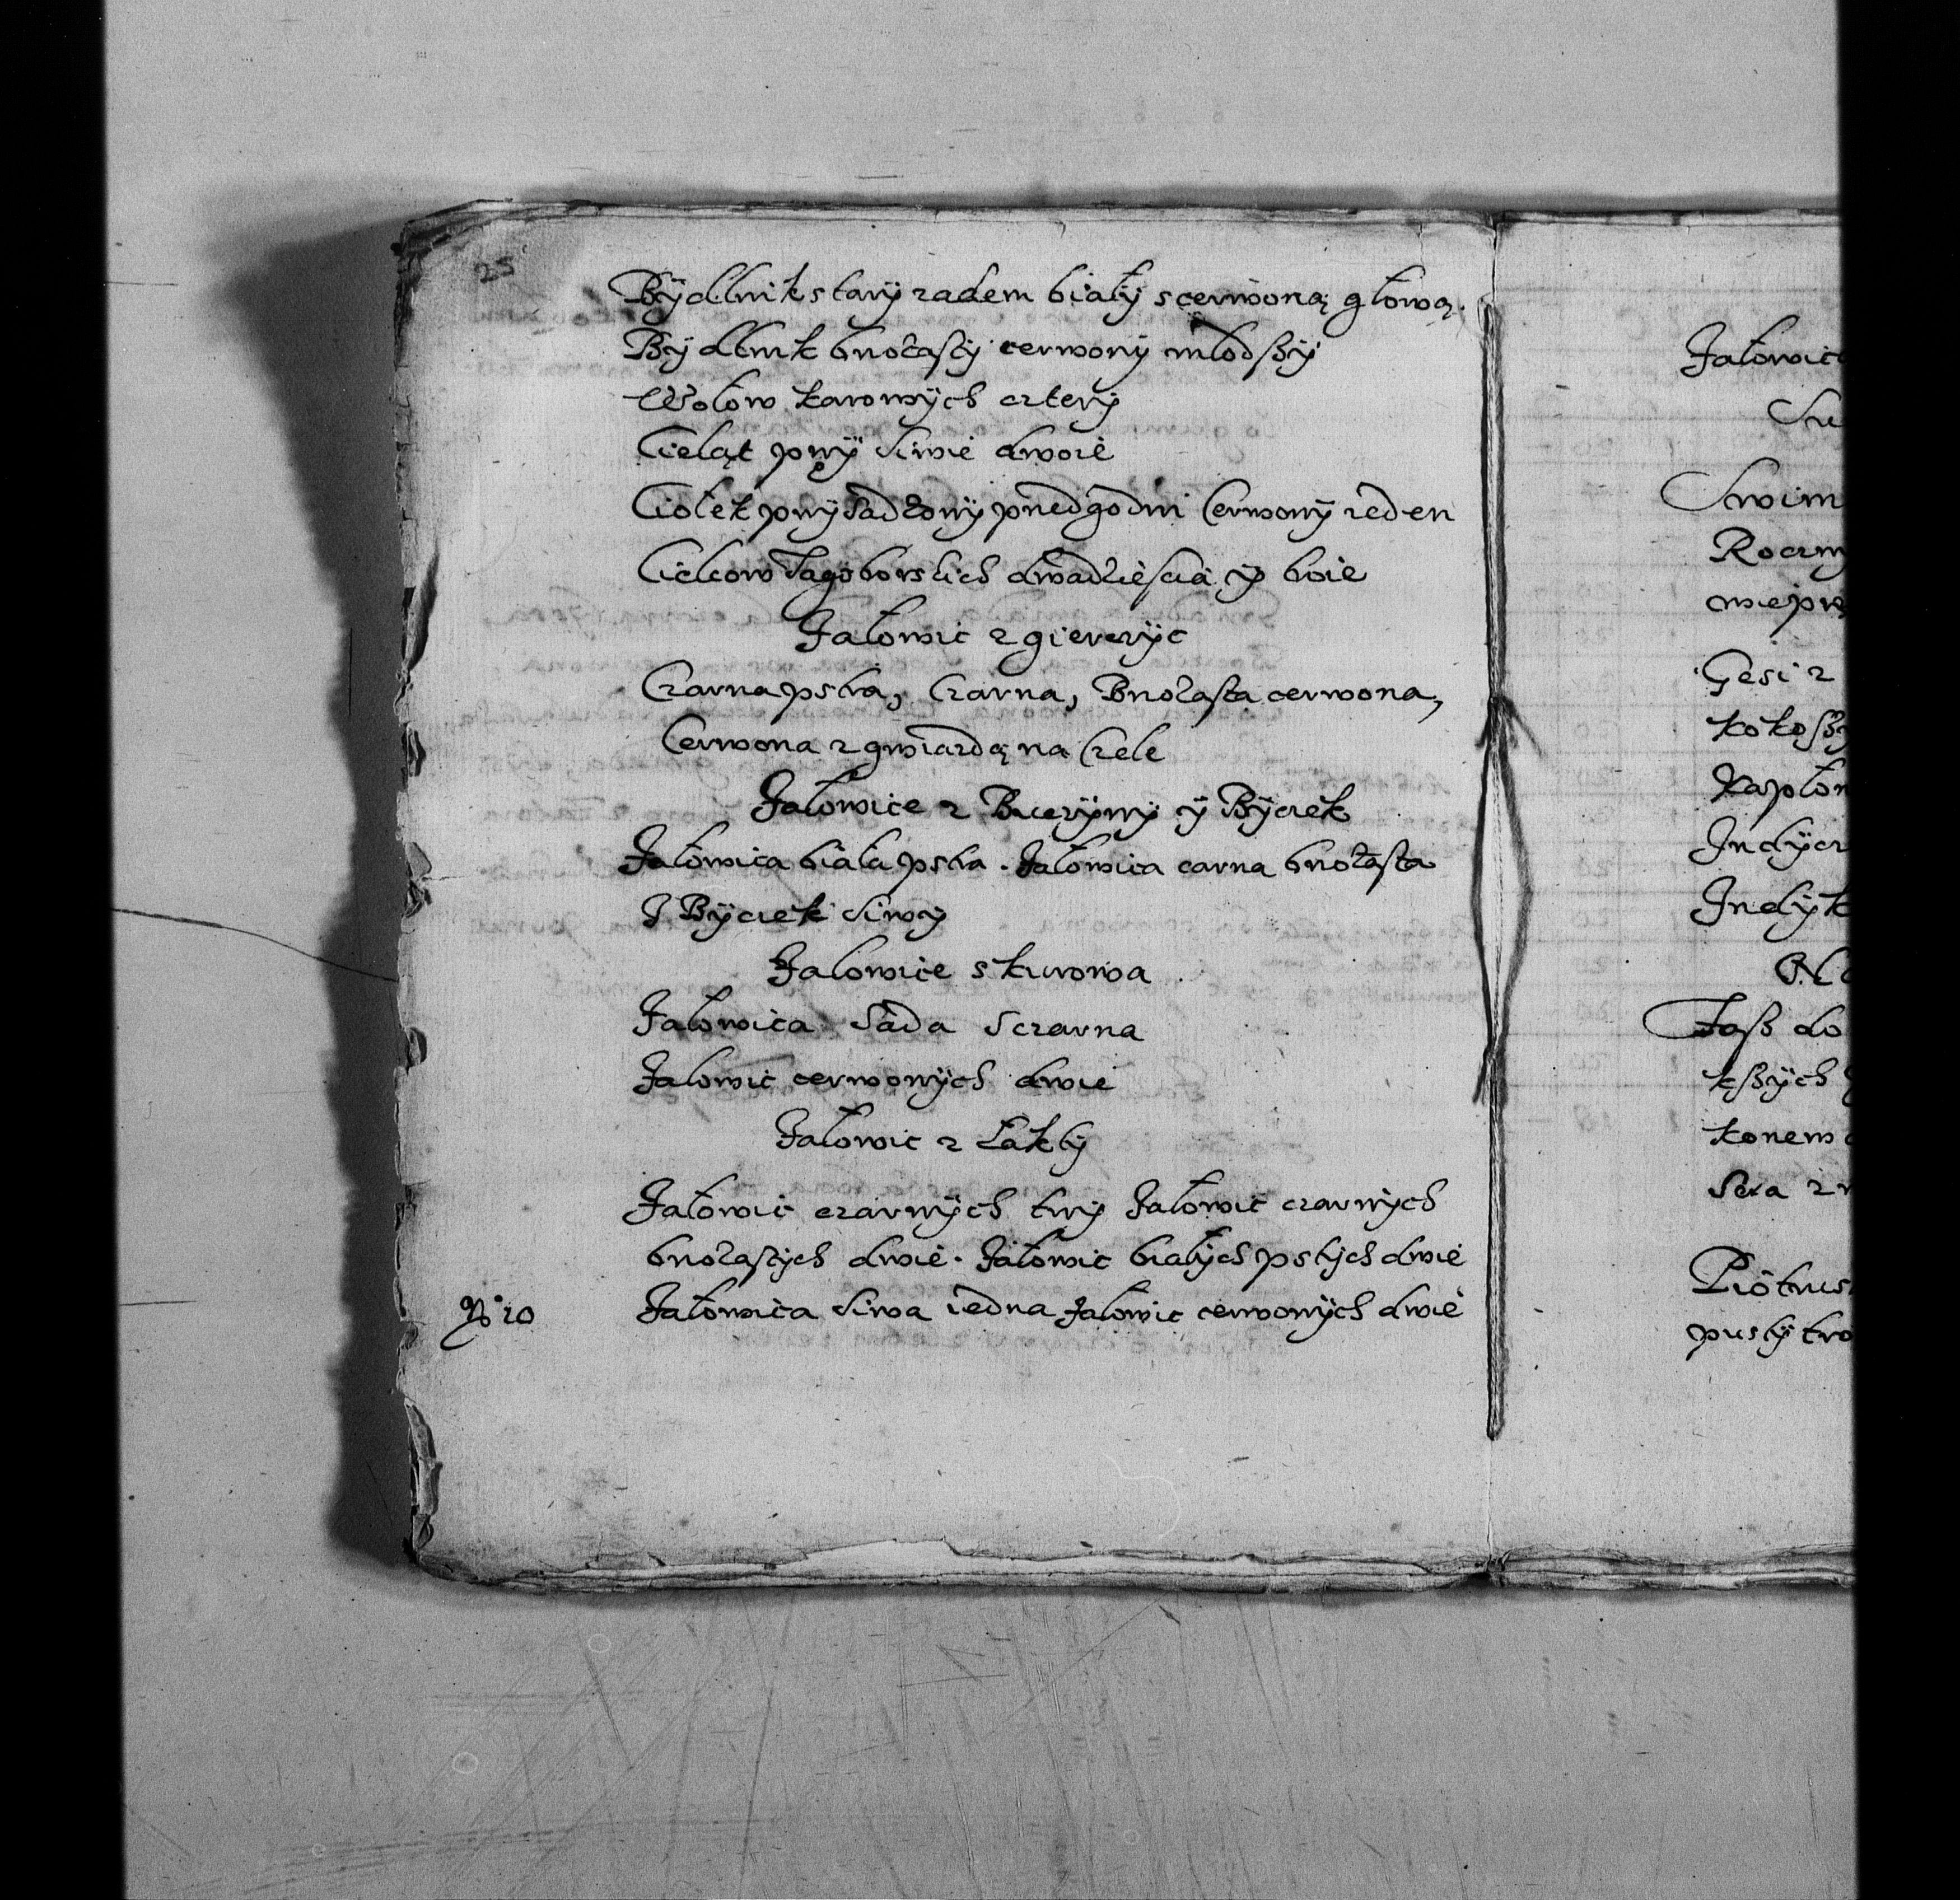 25
Bÿdlnik starÿ zadem białÿ s cerwoną głową.
Bÿdlnik broćasty cerwony młodßÿ
Wołow karowÿch cztery
Cieląt prÿ siwie dwoie
Ciołek prÿsadkowÿ przedgodni Cerwonÿ ieden
Cielcow dwadziescia ÿ troie
Jałowic z gierczyc
Czarna pstra, Czarna, Broćasta cerwona,
Cerwona z gwiazdą na Czele
Jałowice z Buczÿnÿ ÿ Bÿczek
Jałowica biała pstra. Jałowica carna broćasta
I Bÿczek siwy
Jalowice s kurowa
Jałowica sada sczarna
Jalowic cerwonÿch dwie
Jałowic z Łakty
Jałowic czarnÿch trzy Jałowic czarnÿch
broćastÿch dwie. Jałowic białÿch pstÿch dwie
Nº 10 Jałowica siwa iedna Jalowic cerwonÿch dwie
Jałowic
Swim
Roczny
Gesi z
kokoßy
Kapłon
Indÿcz
Indÿk
Faß do
kßÿch
konew
Piotrus
pustÿ tro